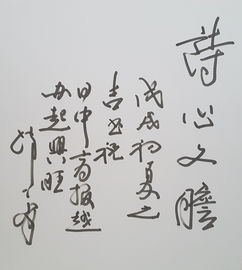 詩心文膽
戊戌初夏之
吉 祝
日中商报越
办越興旺